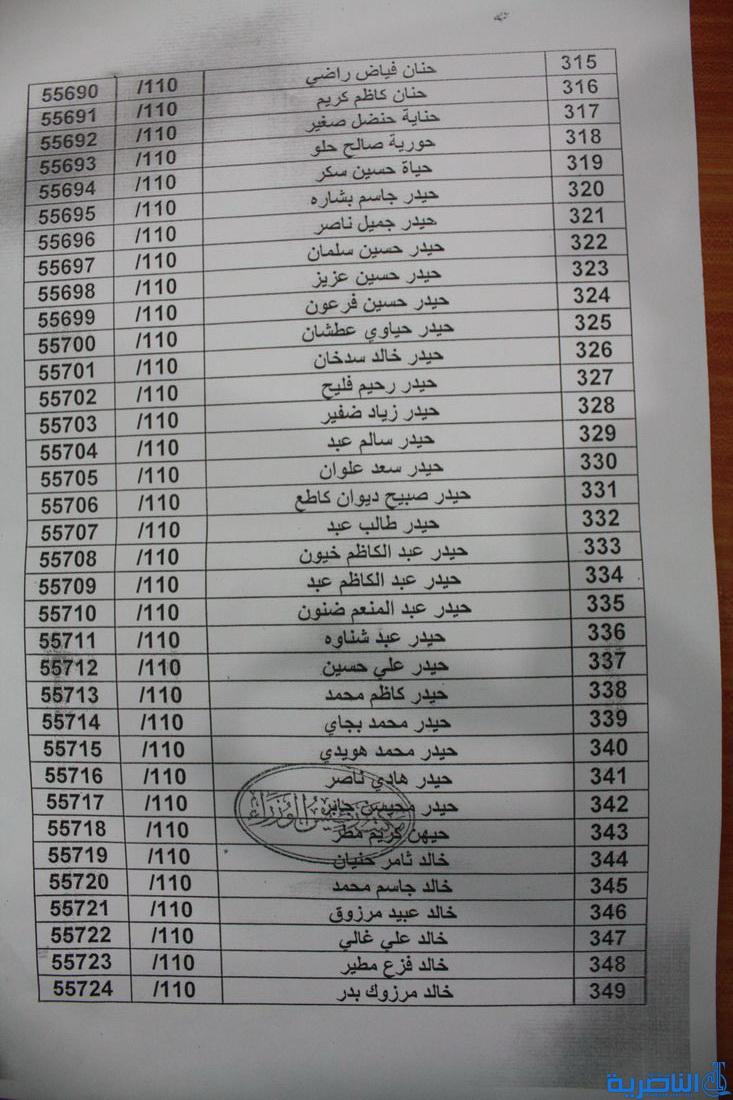 315 حنان فياض راضي /110 55690
316 حنان كاظم كريم /110 55691
317 حناية حنضل صغير /110 55692
318 حورية صالح حلو /110 55693
319 حياة حسين سكر /110 55694
320 حيدر جاسم بشاره /110 55695
321 حيدر جميل ناصر /110 55696
322 حيدر حسين سلمان /110 55697
323 حيدر حسين عزيز /110 55698
324 حيدر حسين فرعون /110 55699
325 حيدر حياوي عطشان /110 55700
326 حيدر خالد سدخان /110 55701
327 حيدر رحيم فليح /110 55702
328 حيدر زياد ضفير /110 55703
329 حيدر سالم عبد /110 55704
330 حيدر سعد علوان /110 55705
331 حيدر صبيح ديوان كاطع /110 55706
332 حيدر طالب عبد /110 55707
333 حيدر عبد الكاظم خيون /110 55708
334 حيدر عبد الكاظم عبد /110 55709
335 حيدر عبد المنعم ضنون /110 55710
336 حيدر عبد شناوه /110 55711
337 حيدر علي حسين /110 55712
338 حيدر كاظم محمد /110 55713
339 حيدر محمد بجاي /110 55714
340 حيدر محمد هويدي /110 55715
341 حيدر هادي ناصر /110 55716
342 حيدر محيسن جابر /110 55717
رئيس الوزراء
343 كريم مطر /110 55718
344 خالد ثامر حنيان /110 55719
345 خالد جاسم محمد /110 55720
346 خالد عبيد مرزوق /110 55721
347 خالد علي غالي /110 55722
348 خالد فزع مطير /110 55723
349 خالد مرزوك بدر /110 55724
الناصرية